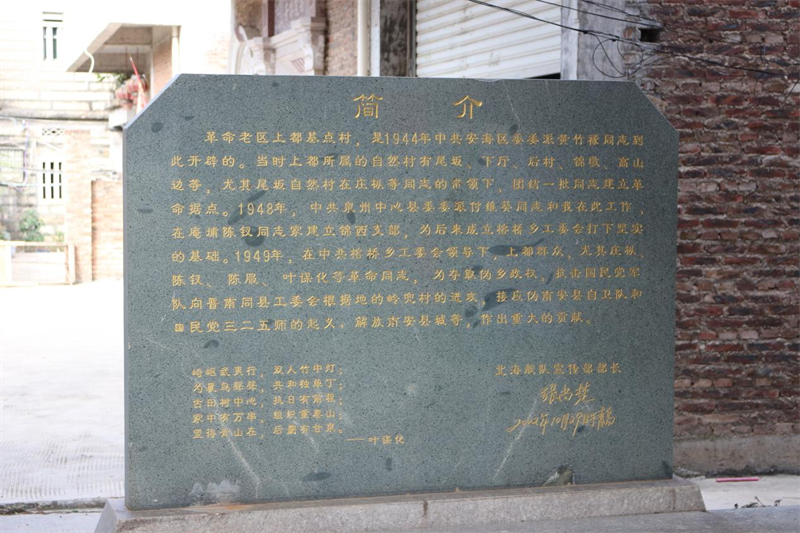 简 介
革命老区上都基点村，是1944年中共安海区委委派黄竹禄同志到
此开辟的。当时上都所属的自然村有尾坂、下厅、后村、锦墩、高山
边等，尤其尾坂自然村在庄枞等同志的带领下，团结一批同志建立革
命据点。1948年，中共泉州中心县委委派付维葵同志和我在此工作，
在庵埔陈钗同志家建立锦西支部，为后来成立榕桥乡工委会打下坚实
的基础。1949年，在中共榕桥乡工委会领导下，上都群众，尤其庄枞、
陈钗、陈服、叶谋化等革命同志，为夺取伪乡政权，抗击国民党军
队向晋南同县工委会根据地的岭兜村的进攻，接应伪南安县自卫队和
国民党三二五师的起义，解放南安县城等，作出重大的贡献。
崎岖武夷行，双人竹中灯；
共和独单丁；
古田树中心，抗日有前程；
家中有万事，
望得青山在，后量有甘泉。
——叶谋化
北海舰队宣传部部长